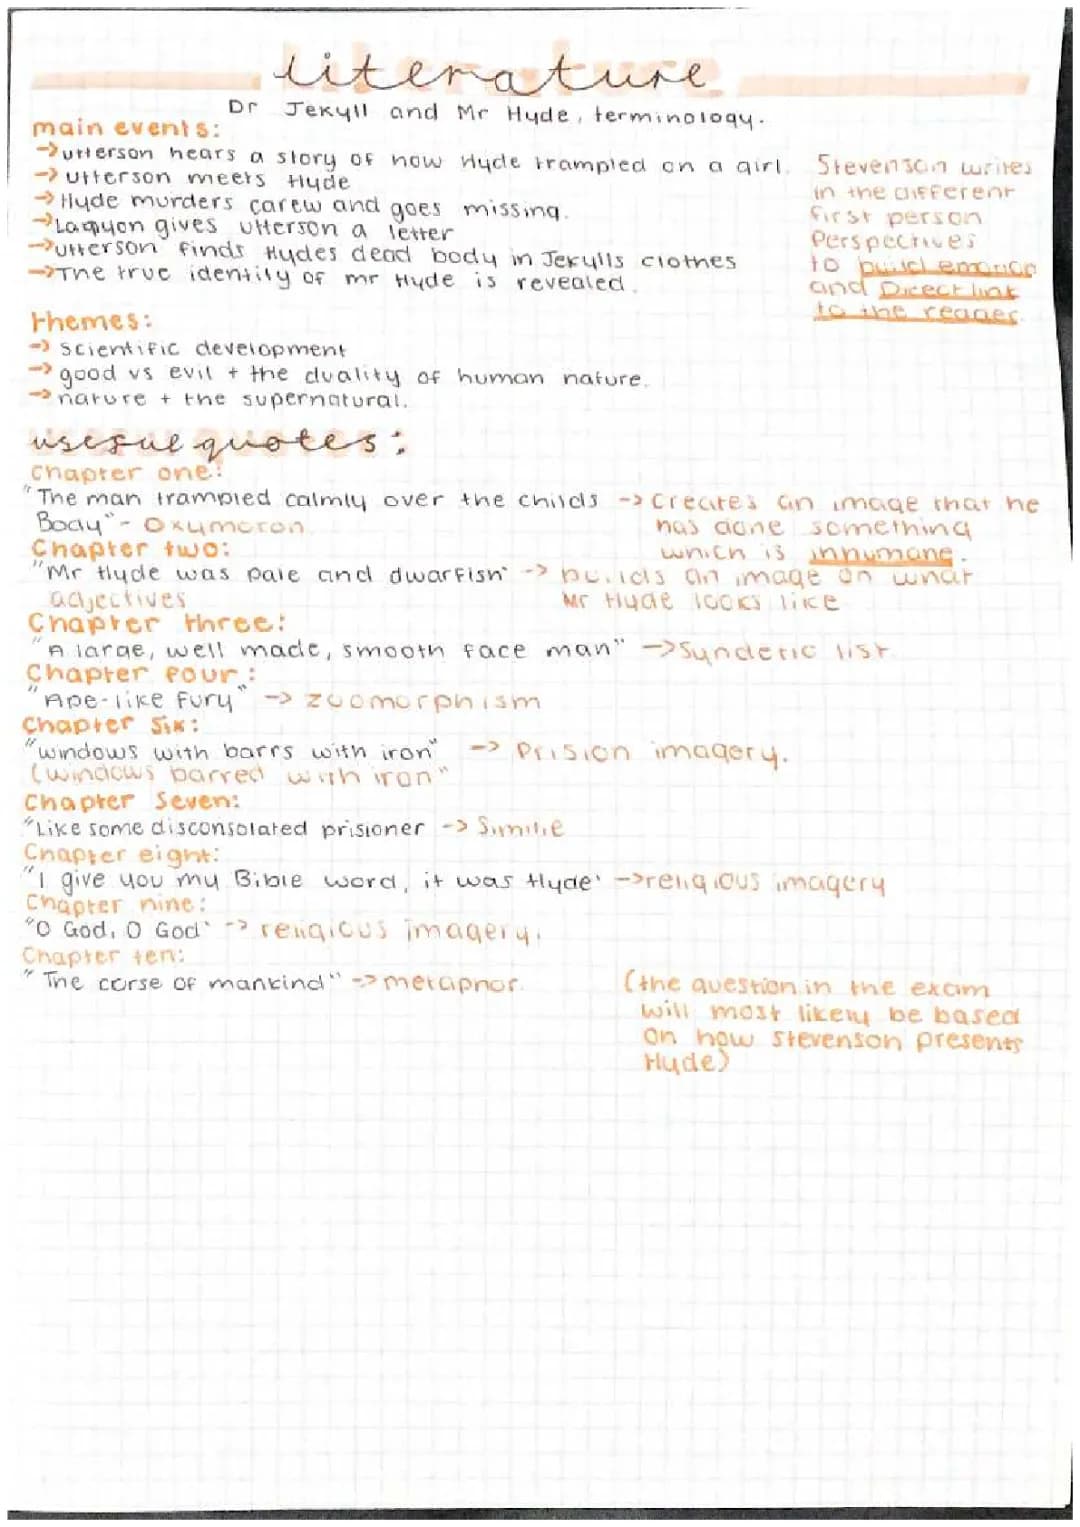 literature
Dr Jekyll and Mr Hyde, terminology.
main events:
→ utterson hears a story of how Hyde trampled on a girl.
→ utterson meets Hyde
→ Hyde murders carew and goes missing.
→ Lanyon gives utterson a letter
→ utterson finds Hydes dead body in Jekylls clothes
→ The true identity of mr Hyde is revealed.
Stevenson writes
in the different
first person
Perspectives
to build emotion
and Direct link
to the reader.
themes:
→ scientific development
→ good vs evil + the duality of human nature.
→ nature + the supernatural.
useful quotes:
Chapter one:
"The man trampled calmly over the childs → Creates an image that he
Body" - Oxymoron. has done something
which is inhumane.
Chapter two:
"Mr Hyde was pale and dwarfish" → builds an image on what
adjectives Mr Hyde looks like
Chapter three:
"A large, well made, smooth face man" → Synderic list.
Chapter four:
"Ape-like fury" → zoomorphism
Chapter Six:
"windows with barrs with iron" → Prision imagery.
(windows barred with iron"
Chapter Seven:
"Like some disconsolated prisioner → Similie
Chapter eight:
"I give you my Bible word, it was Hyde' → religious imagery
Chapter nine:
"O God, O God' → religious imagery.
Chapter ten:
"The curse of mankind" → metaphor.
(the question in the exam
will most likely be based
on how Stevenson presents
Hyde)